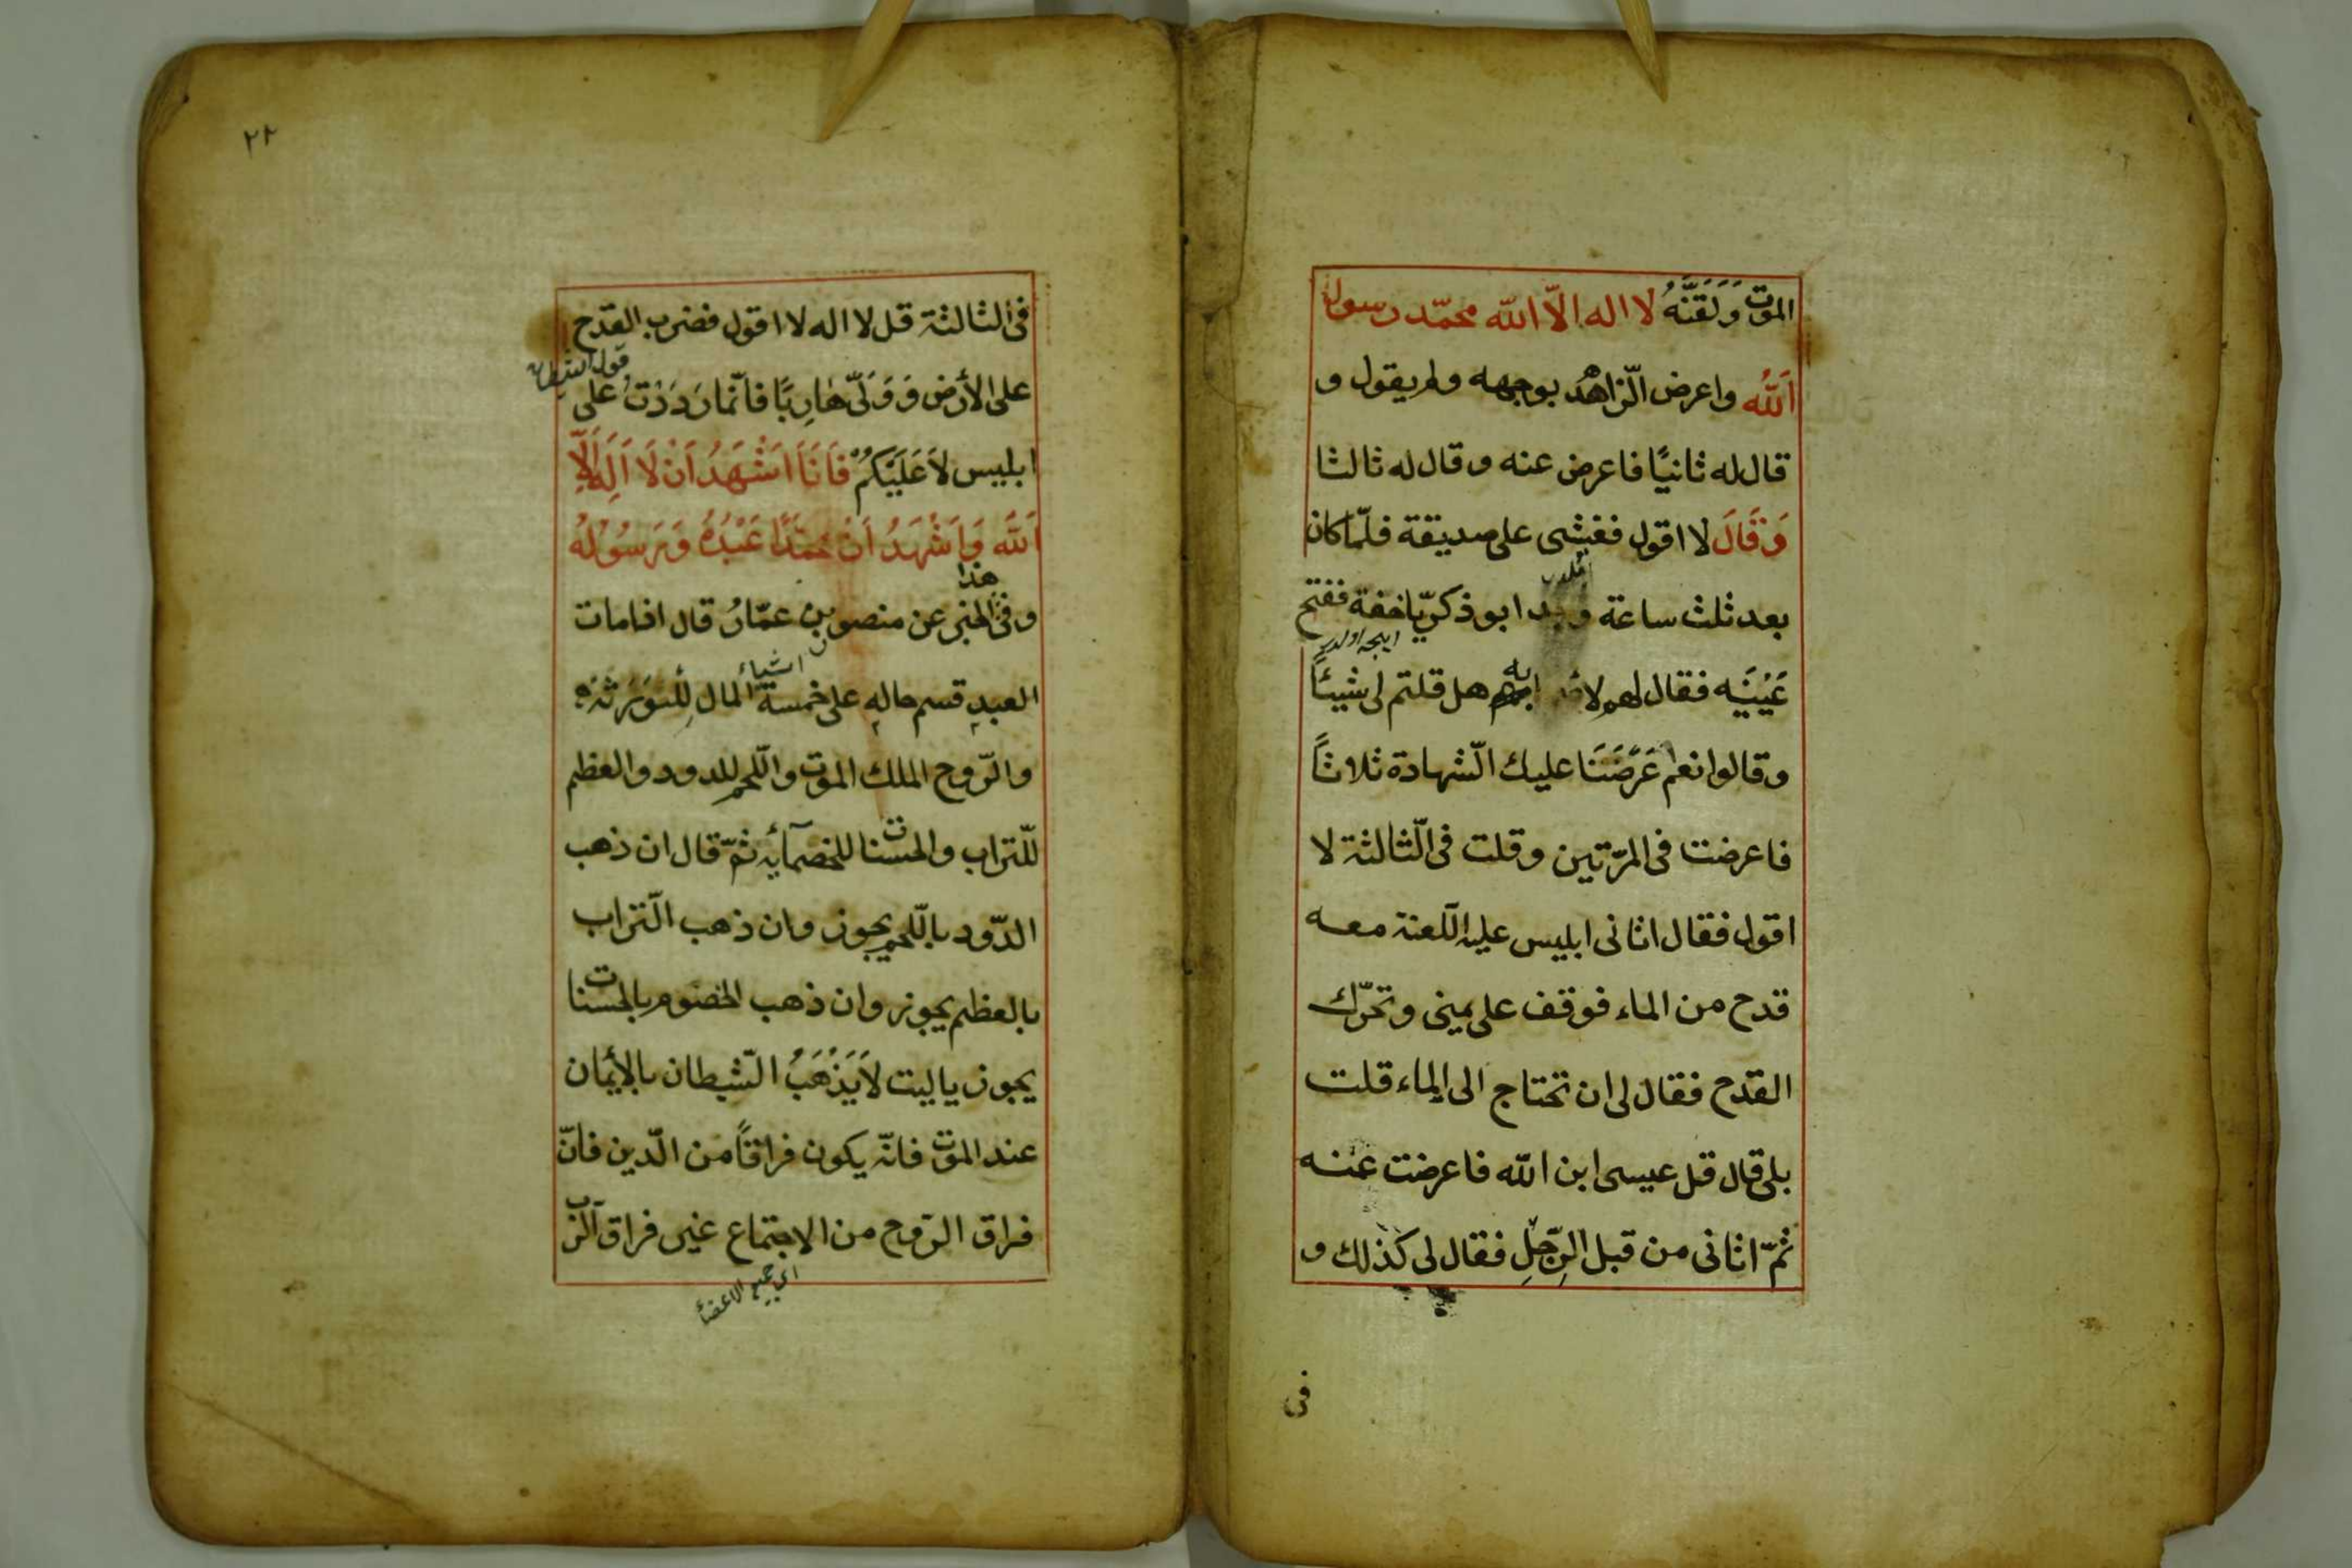 الموت وَلَقَنَّهُ لا اله الّا اللّه محمّد رسول
اَللّهُ واعرض الّزاهُد بوجهه ولم يقول و
قال له ثانيًا فاعرض عنه وقال له ثالثا
وَقَالَ لا اقول فغشى على صديقة فلمّا كان
بعد ثلث ساعة ابو ذكريّا خفة ففتح
عَيْنَيَه فقال لهم هل قلتم لى شيئًا
وقالوا نعم عَرَّضْنَا عليك الّشهادة ثلاثاً
فاعرضت فى المرّتين وقلت فى الّثالثة لا
اقول فقال اتانى ابليس عليه الّلعنة معه
قدح من الماء فوقف على يمينى وتحرّك
القدح فقال لى ان تحتاج الى الماء قلت
بلى قال قل عيسى ابن اللّه فاعرضت عنه
ثمّ اتانى من قبل الرّجلِ فقال لى كذلك و
فى
٢٢
فى الثالثة قل لا اله لا اقول فضرب القدح
قول الشيطان
على الأرض وَوَلّى هَارِبًا فانّما رَدَدْتُ على
ابليس لاَ عَلَيْكُمْ فَاَنَا اَشْهَدُ اَنْ لَا اَلِهَ اِلّاَ
اَللّهَ وَاَشْهَدُ اَنْ محمّدًا عَبْدُهُ وَرَسُولُهُ
هذا
وفى الخبر عن منصور بن عمّارُ قال اذا مات
اشياء
العبدِ قسم حالهِ على خمسة المال لِلْوَرَثَهِ
والرّوح الملك الموت والّلحم للدود والعظم
للّتراب والحسنات للخصمآئه ثمّ قال ان ذهب
الدّود بالّلحم يجوز وان ذهب الّتراب
بالعظم يجوز وان ذهب الخصوم بالحسنات
يجوز ياليت لاَيَذْهَبُ الّشيطان بالأِيمان
عند الموت فانّه يكون فراقاً من الّدين فانّ
فراق الرّوح من الاجتماع غير فراق الرّب
اى جميع الاعضاء